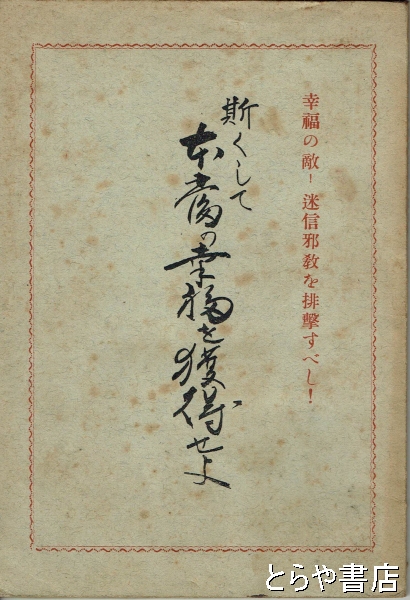 幸福の敵！ 迷信邪教を排撃すべし！
斯くして
本当の幸福を獲得せよ
とらや書店